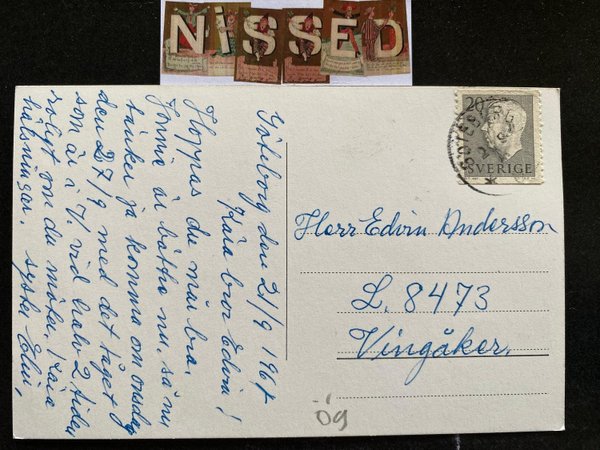 NISSED
20
SVERIGE
GÖTEBORG
Göteborg den 21/9
Kära bror Edvin!
Hoppas du mår bra.
är bättre nu, så nu
tänker ja komma om onsdag
den 27/9 med det tåget
som är i V. vid halv 2 tiden
roligt om du möter. Kära
hälsningar. syster Elin,
Herr Edvin Andersson
L. 8473
Vingåker.
Ög